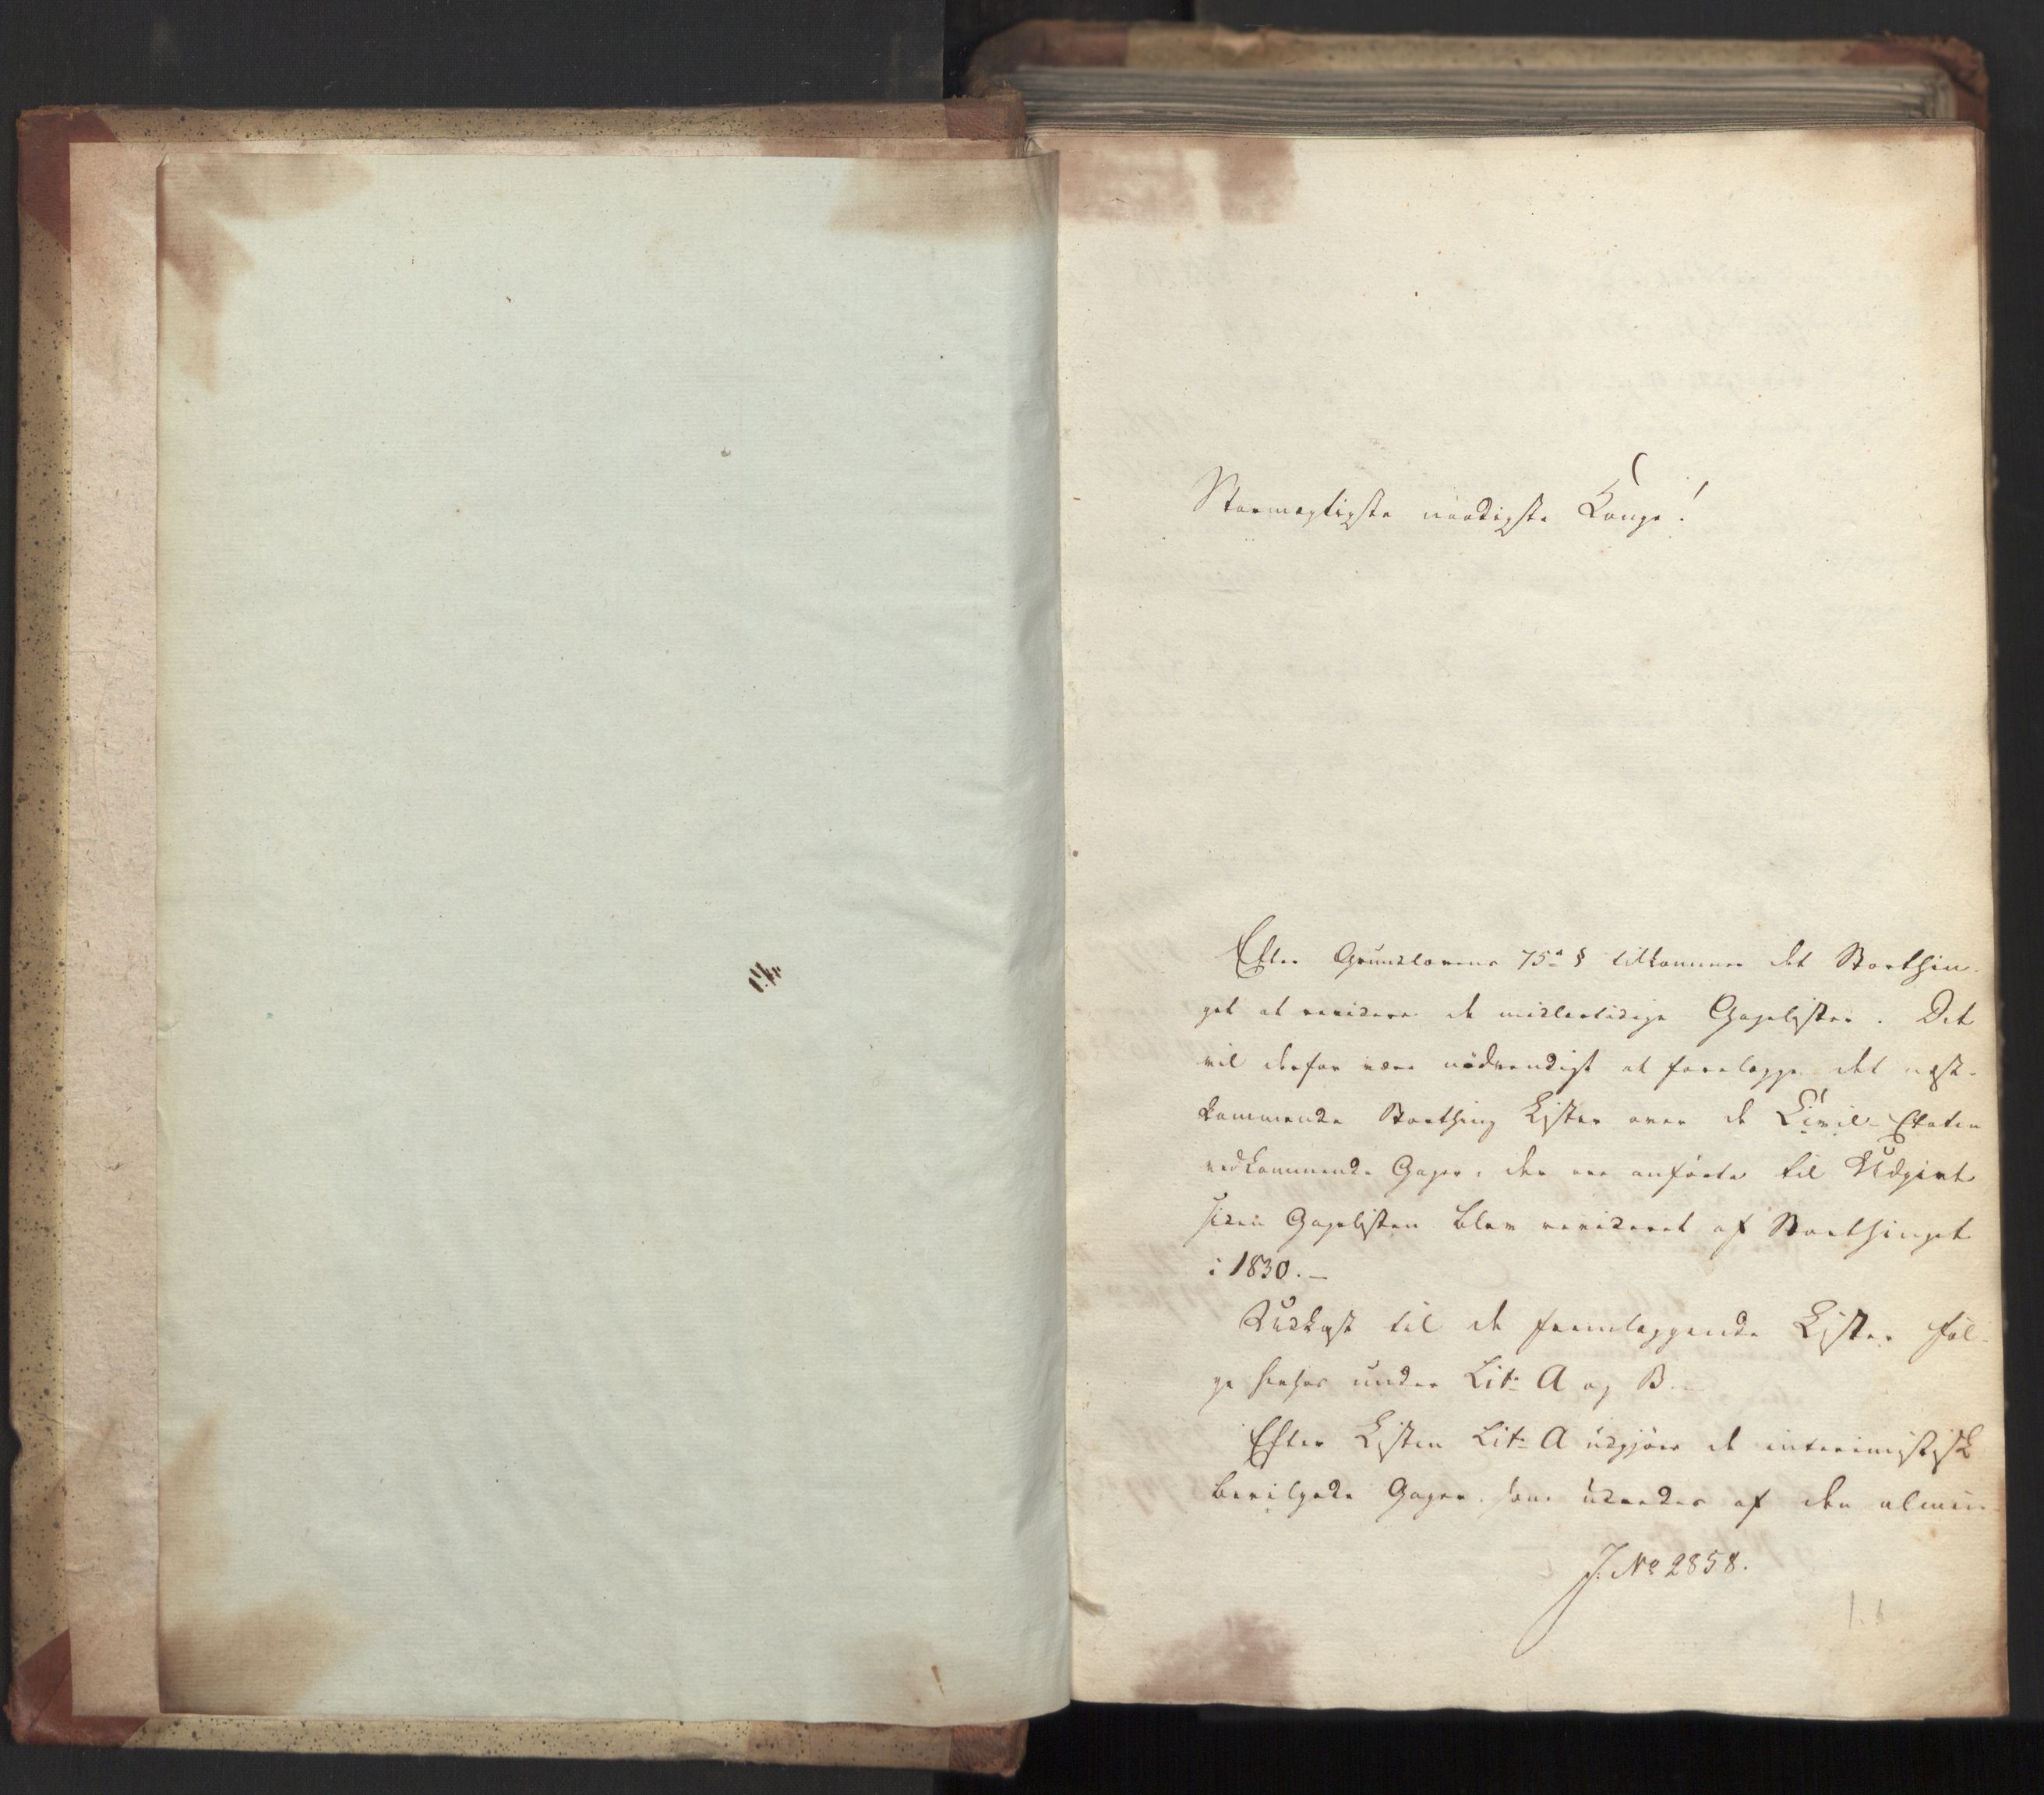 Stormægtigste naadigste Konge!
Efter Grundlovens 75de § tilkommer det Storthin-
get at revidere de midlertidige Gagelister. Det
vil derfor være nödvendigt at forelægge det næst-
kommende Storthing Lister over de Civil-Etaten
vedkommende Gager, der ere anförte til Udgivt
siden Gagelisten blev revideret af Storthinget
i 1830.-
Udkast til de fremlæggende Lister föl-
ge hoshos under Lit. A og B.-
Efter Listen Lit. A udgjöre de interimistisk
bevilgede Gager, som udredes af den almin-
J. No 2858.